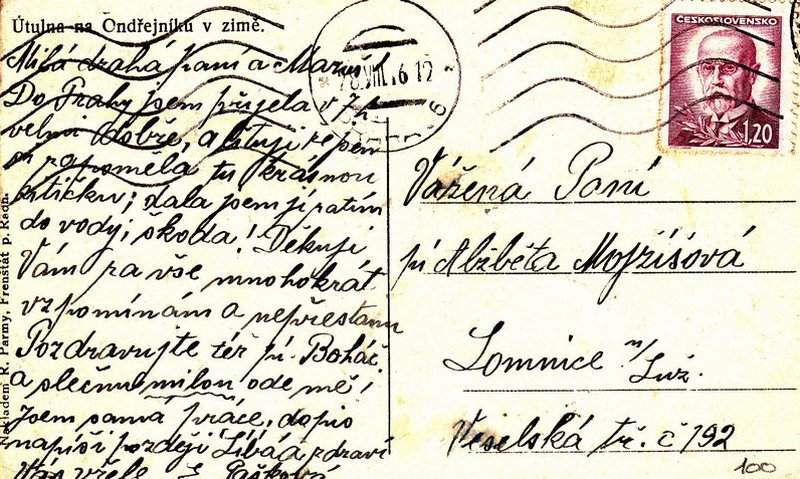 Útulna na Ondřejníku v zimě.
Milá drahá paní a Maruš
Do Prahy jsem přijela v
velmi dobře, a lituji že jsem
zapoměla tu krásnou
kytičku; dala jsem ji zatím
do vody; škoda! Děkuji
Vám za vše mnohokrát
vzpomínám a nepřestanu
Pozdravujte též pí. Boháč
a slečnu milou ode mě!
Jsem samá práce, dopis
napíši později Líbá a zdraví
Vás vřele
Nákladem R. Parmy, Frenštát p. Radh.
VIII. 6 12
6
ČESKOSLOVENSKO
1,20
Vážená Paní
pí Alžběta Mojžíšová
Lomnice n/Luž.
Veselská tř. č 192
100